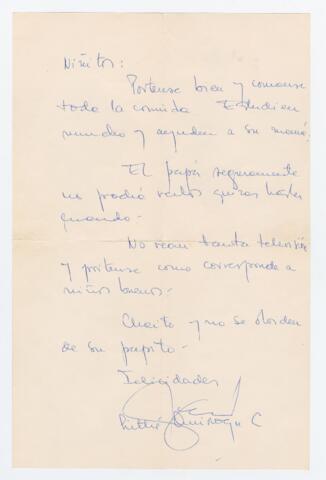 Niñitos:
Portense bien y comanse
toda la comida Estudien
mucho y ayuden a su mamá.
El papá seguramente
no podrá verlos quizas hasta
cuando.
No vean tanta televisión
y portense como corresponde a
niños buenos.
Chaito y no se olviden
de su papito.
Felicidades
Quiroga C